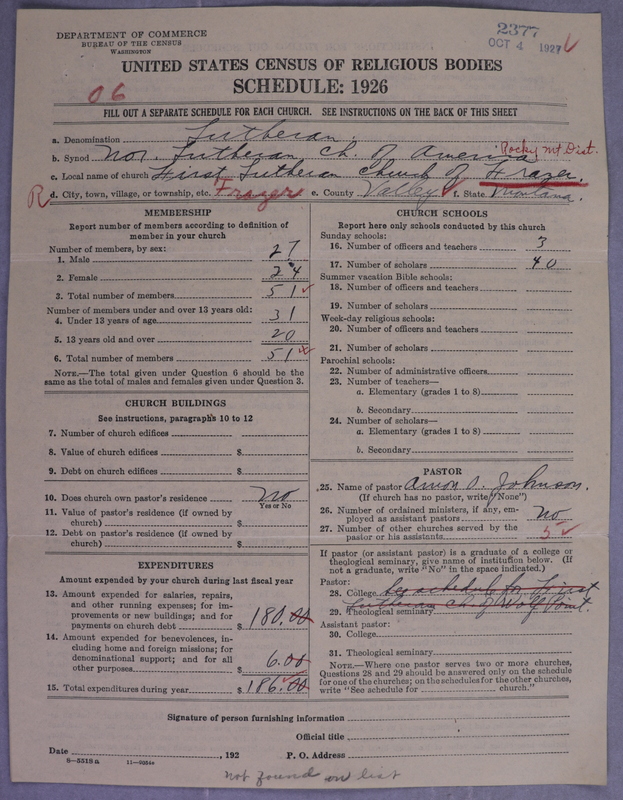 DEPARTMENT OF COMMERCE
BUREAU OF THE CENSUS
WASHINGTON
2377
OCT 4 1927
UNITED STATES CENSUS OF RELIGIOUS BODIES
SCHEDULE: 1926
06
FILL OUT A SEPARATE SCHEDULE FOR EACH CHURCH. SEE INSTRUCTIONS ON THE BACK OF THIS SHEET
a. Denomination Lutheran.
b. Synod Nor. Lutheran Ch. of America Rocky Mt Dist.
c. Local name of church First Lutheran Church of Frazer.
R d. City, town, village, or township, etc. Frazer e. County Valley f. State Montana.
MEMBERSHIP
Report number of members according to definition of
member in your church
Number of members, by sex:
1. Male 27
2. Female 24
3. Total number of members 51
Number of members under and over 13 years old:
4. Under 13 years of age 31
5. 13 years old and over 20
6. Total number of members 51
NOTE.—The total given under Question 6 should be
same as the total of males and females given under Question 3.
CHURCH BUILDINGS
See instructions, paragraphs 10 to 12
7. Number of church edifices
8. Value of church edifices $
9. Debt on church edifices $
10. Does church own pastor's residence No
Yes or No
11. Value of pastor's residence (if owned by
church) $
12. Debt on pastor's residence (if owned by
church) $
EXPENDITURES
Amount expended by your church during last fiscal year
13. Amount expended for salaries, repairs,
and other running expenses; for im-
provements or new buildings; and for
payments on church debt $ 180.00
14. Amount expended for benevolences, in-
cluding home and foreign missions; for
denominational support; and for all
other purposes $ 6.00
15. Total expenditures during year $ 186.00
CHURCH SCHOOLS
Report here only schools conducted by this church
Sunday schools:
16. Number of officers and teachers 3
17. Number of scholars 40
Summer vacation Bible schools:
18. Number of officers and teachers
19. Number of scholars
Week-day religious schools:
20. Number of officers and teachers
21. Number of scholars
Parochial schools:
22. Number of administrative officers
23. Number of teachers—
a. Elementary (grades 1 to 8)
b. Secondary
24. Number of scholars—
a. Elementary (grades 1 to 8)
b. Secondary
PASTOR
25. Name of pastor Amon O. Johnson.
(If church has no pastor, write "None")
26. Number of ordained ministers, if any, em-
ployed as assistant pastors No
27. Number of other churches served by the
pastor or his assistants 5
If pastor (or assistant pastor) is a graduate of a college or
theological seminary, give name of institution below. (If
not a graduate, write "No" in the space indicated.)
Pastor:
28. College See schedule for First
29. Theological seminary Lutheran Ch. of Wolf Point.
Assistant pastor:
30. College
31. Theological seminary
NOTE.—Where one pastor serves two or more churches,
Questions 28 and 29 should be answered only on the schedule
for one of the churches; on the schedules for the other churches,
write "See schedule for church."
Signature of person furnishing information
Official title
Date , 192 P. O. Address
8-5518a 11-9204a
not found on list